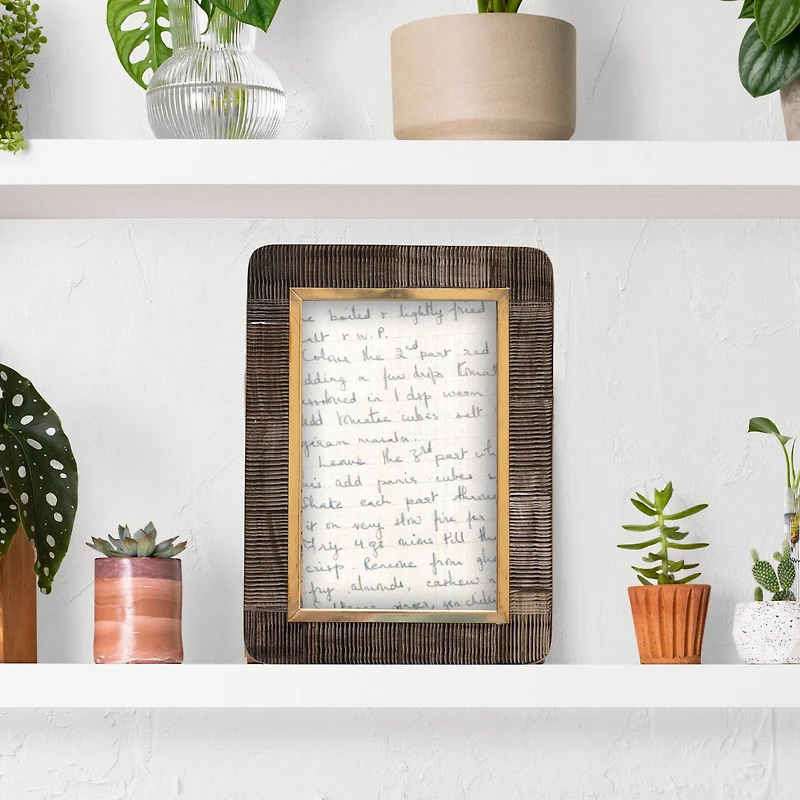 e boiled & lightly fried
alt & w.P.
Colour the 2nd part red
dding a few drops tomat
issolved in 1 dsp warm
add tomatoe cubes salt
garam masala.
Leave the 3rd part wh
is add panir cubes
Shake each part throu
it on very slow fire for
Fry 4 gs mins till th
crisp. Remove from ghe
fry almonds, cashew n
ginger, grn chili